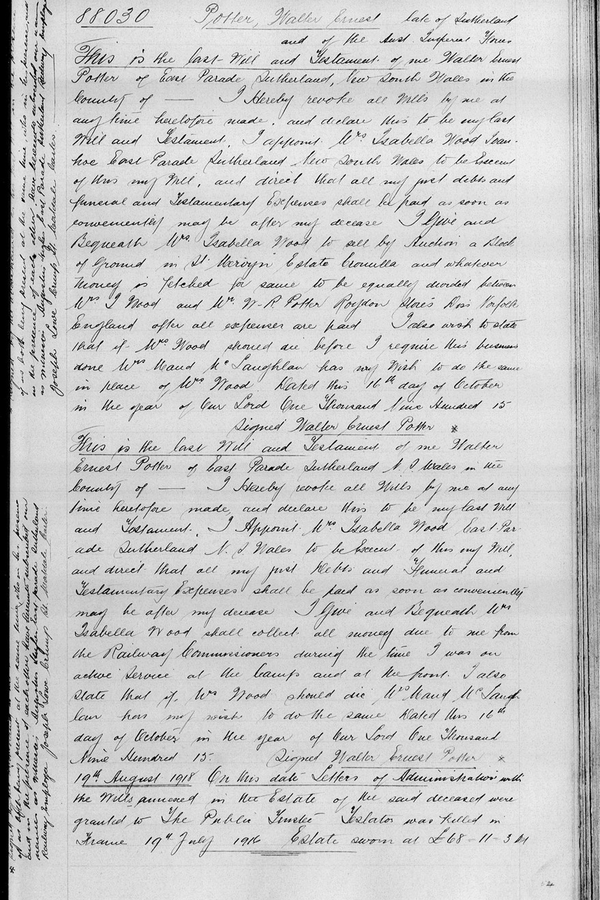 88030 Potter, Walter Ernest late of Sutherland
and of the Aust Imperial Forces
This is the last Will and Testament of me Walter Ernest
Potter of East Parade Sutherland, New South Wales in the
County of — I Hereby revoke all Wills by me at
any time heretofore made, and declare this to be my last
Will and Testament, I appoint Mrs Isabella Wood Ivan-
hoe East Parade Sutherland New South Wales to be Execut
of this my Will, and direct that all my just debts and
funeral and Testamentary Expenses shall be paid as soon as
conveniently may be after my decease I Give and
Bequeath Mrs Isabella Wood to sell by Auction a Block
of Ground in St. Mervyn Estate Cronulla and whatever
money is fetched for same to be equally divided between
Mrs I Wood and Mr W. R Potter Roydon Stores Diss Norfolk
England after all expenses are paid I also wish to state
that if Mrs Wood should die before I require this business
done Mrs Maud Mc Laughlan has my Wish to do the same
in place of Mrs Wood Dated this 16th day of October
in the year of Our Lord One Thousand Nine Hundred 15
Signed Walter Ernest Potter *
This is the last Will and Testament of me Walter
Ernest Potter of East Parade Sutherland N. S Wales in the
County of — I Hereby revoke all Wills by me at any
time heretofore made, and declare this to be my last Will
and Testament, I Appoint Mrs Isabella Wood East Par-
ade Sutherland N. S Wales to be Execut. of this my Will,
and direct that all my just Debts and Funeral and
Testamentary Expenses shall be paid as soon as conveniently
may be after my decease I Give and Bequeath Mrs
Isabella Wood shall collect all money due to me from
the Railway Commissioners during the time I was on
active Service at the Camps and at the front. I also
state that if Mrs Wood should die Mrs Maud Mc Laugh
lan has my wish to do the same Dated this 16th
day of October in the year of Our Lord One Thousand
Nine Hundred 15 Signed Walter Ernest Potter *
19th August 1918 On this date Letters of Administration with
the Wills annexed in the Estate of the said deceased were
granted to The Public Trustee Testator was killed in
France 19th July 1916 Estate sworn at £68-11-3
of us both being present at the same time who in his presence and
in the presence of each other have hereunto subscribed our names